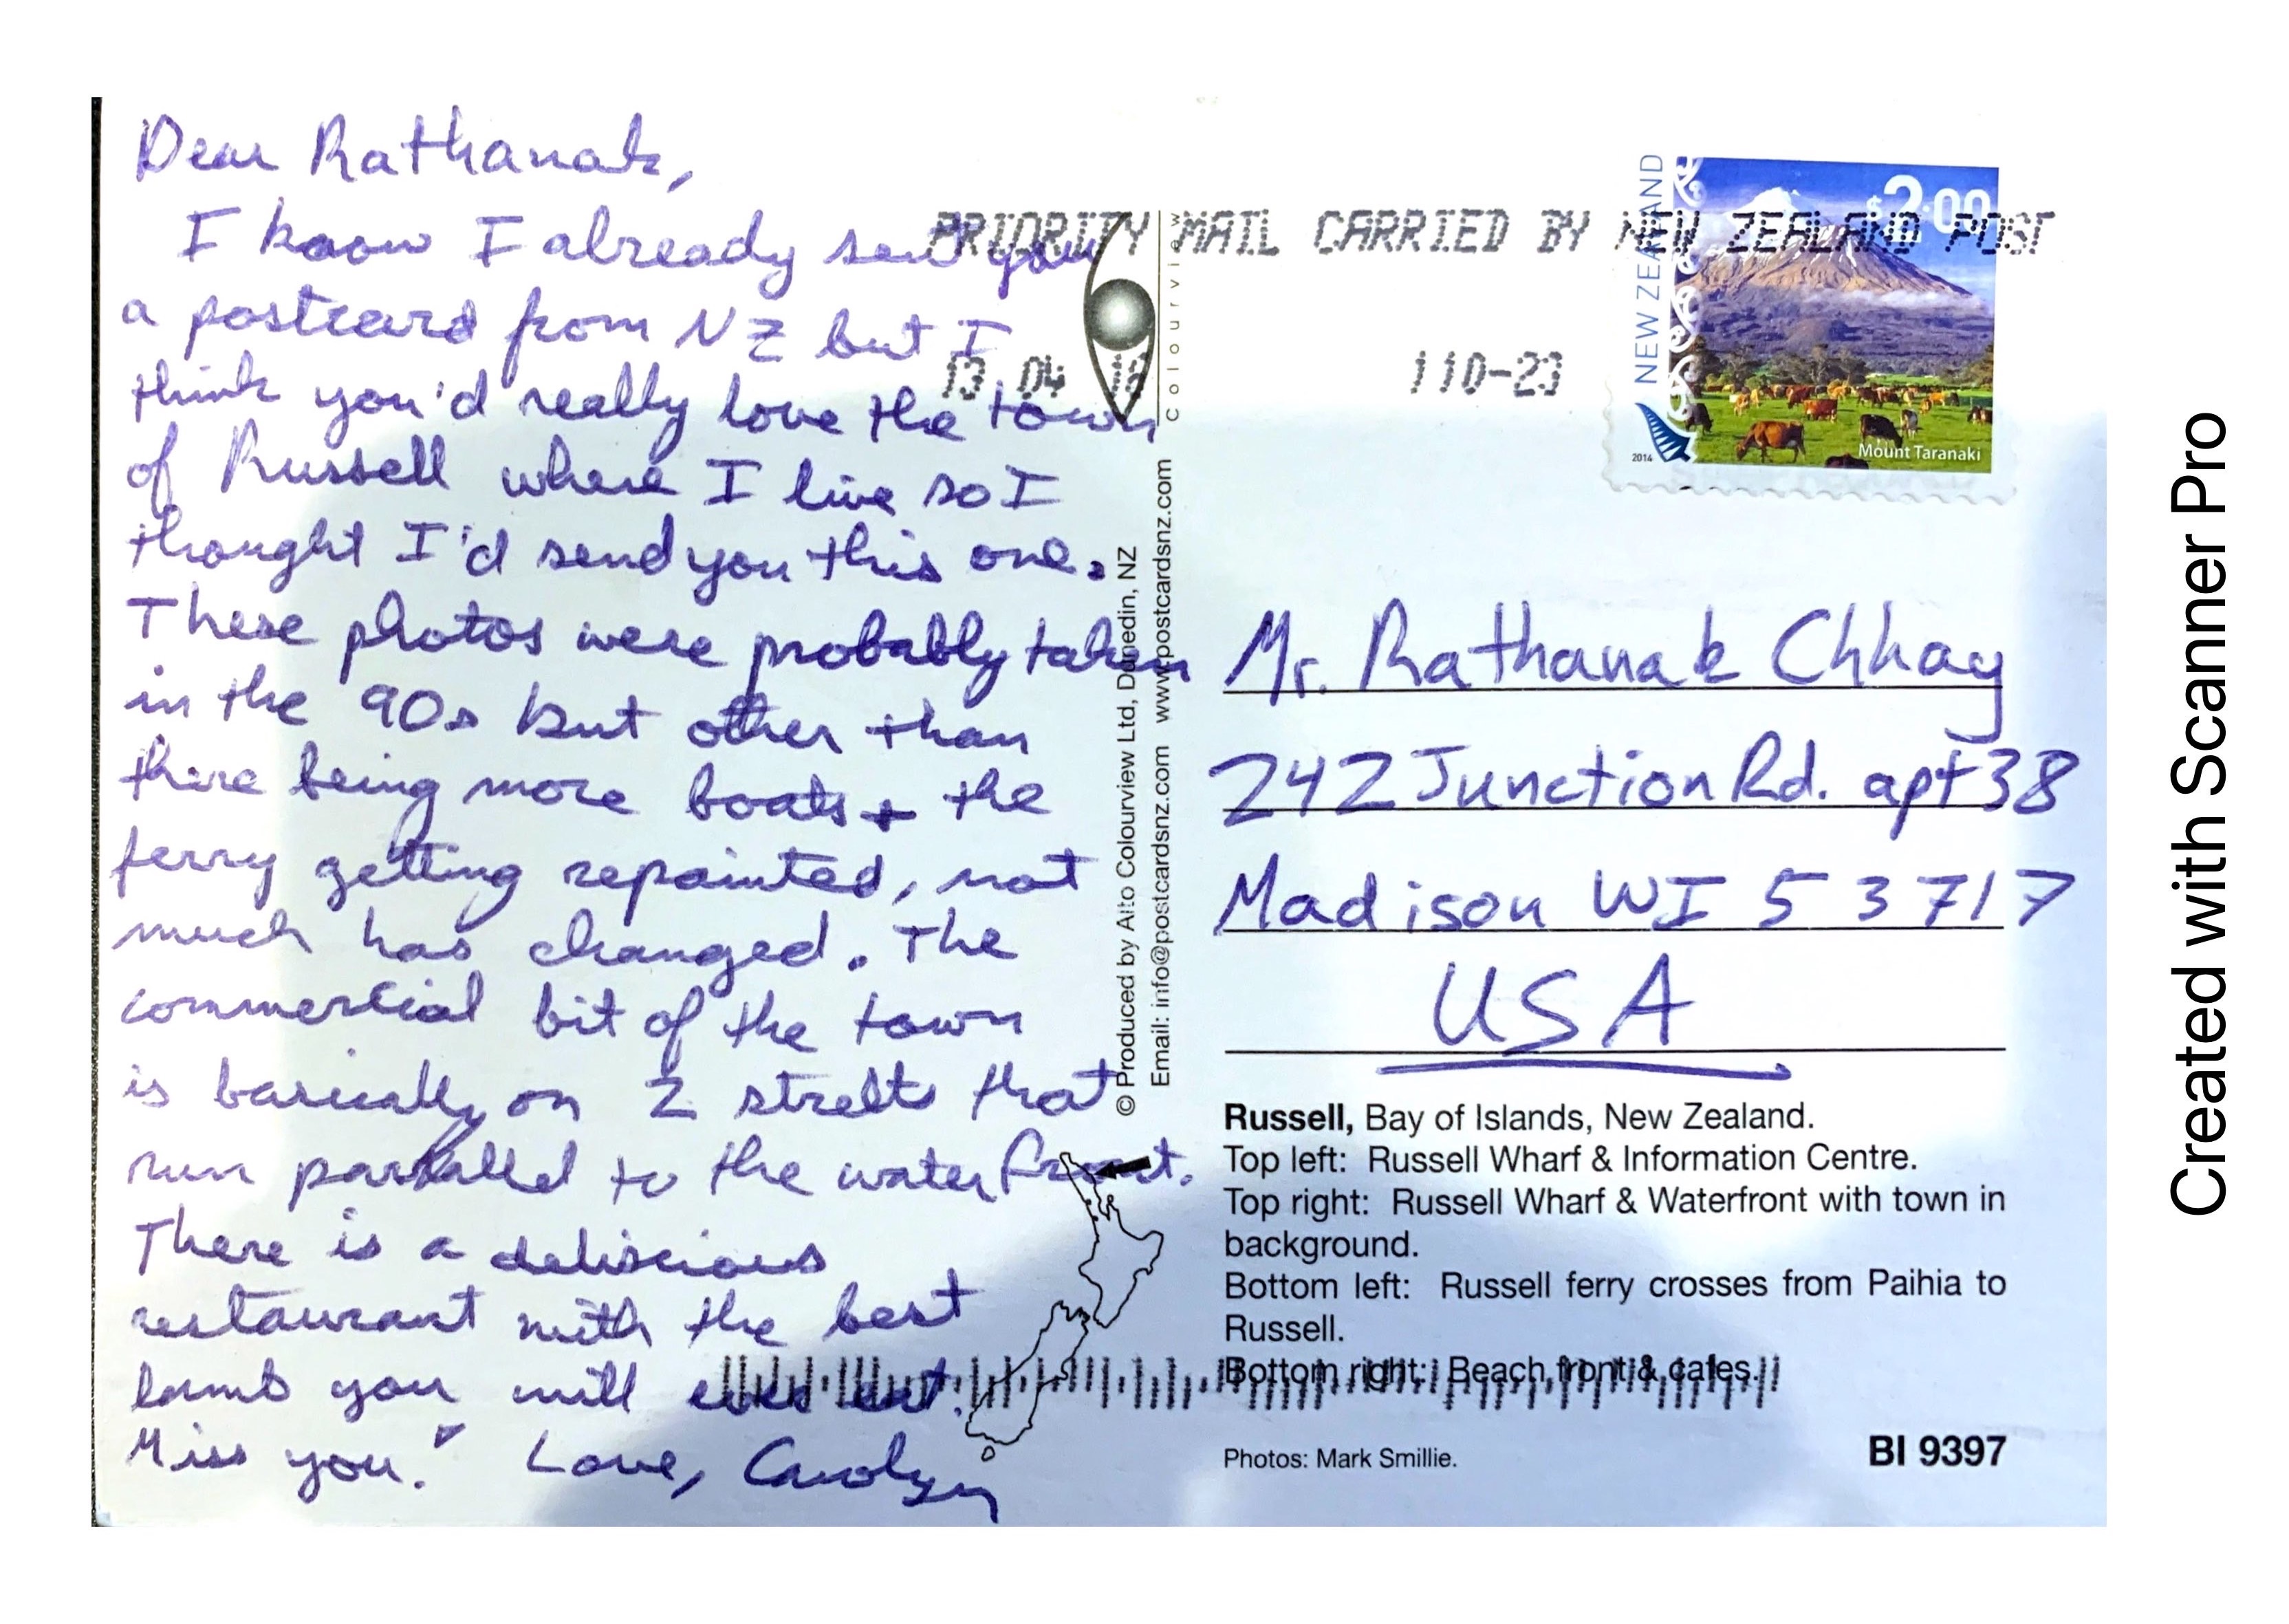 Dear Rathanak,
I know I already sent you
a postcard from NZ but I
think you'd really love the town
of Russell where I live so I
thought I'd send you this one.
These photos were probably taken
in the 90s but other than
there being more boats + the
ferry getting repainted, not
much has changed. The
commercial bit of the town
is basically on 2 streets that
run parallel to the waterfront.
There is a deliscious
restaurant with the best
lamb you will ever eat.
Miss you! Love, Carolyn
PRIORITY MAIL CARRIED BY NEW ZEALAND POST
13 04 16
110-23
Colourview
© Produced by Alto Colourview Ltd, Dunedin, NZ
Email: info@postcardsnz.com www.postcardsnz.com
NEW ZEALAND
$2.00
2014
Mount Taranaki
Mr. Rathanak Chhay
242 Junction Rd. apt 38
Madison WI 53717
USA
Russell, Bay of Islands, New Zealand.
Top left: Russell Wharf & Information Centre.
Top right: Russell Wharf & Waterfront with town in
background.
Bottom left: Russell ferry crosses from Paihia to
Russell.
Bottom right: Beach front & cafes.
Photos: Mark Smillie.
BI 9397
Created with Scanner Pro